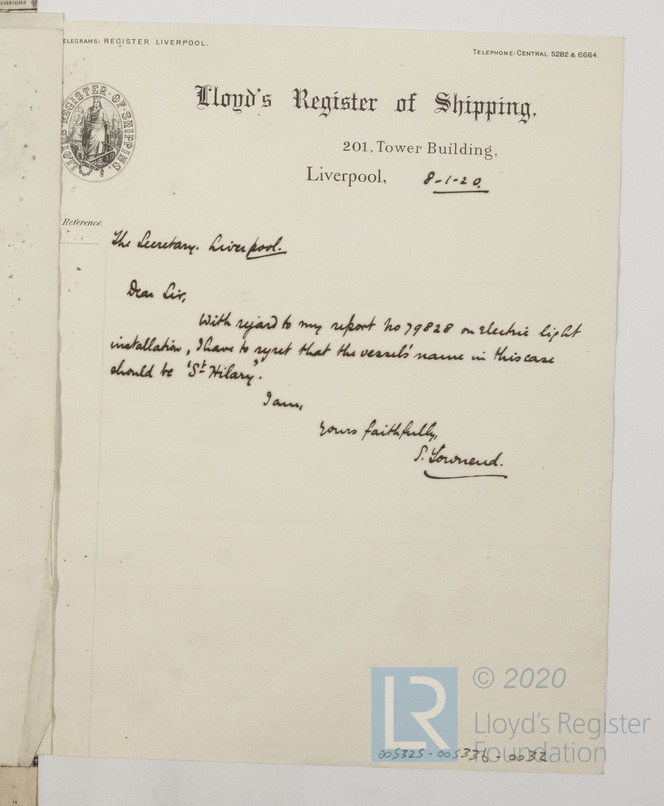 TELEGRAMS: REGISTER LIVERPOOL.
TELEPHONE: CENTRAL 5282 & 6664.
LLOYD'S REGISTER OF SHIPPING
Lloyd's Register of Shipping,
201, Tower Building,
Liverpool, 8-1-20.
Reference
The Secretary. Liverpool.
Dear Sir,
With regard to my report No 79828 on electric light
installation, I have to regret that the vessels' name in this case
should be 'St Hilary'.
I am,
Yours faithfully,
S. Townend.
LR
© 2020
Lloyd's Register
Foundation
005325-005336-0032